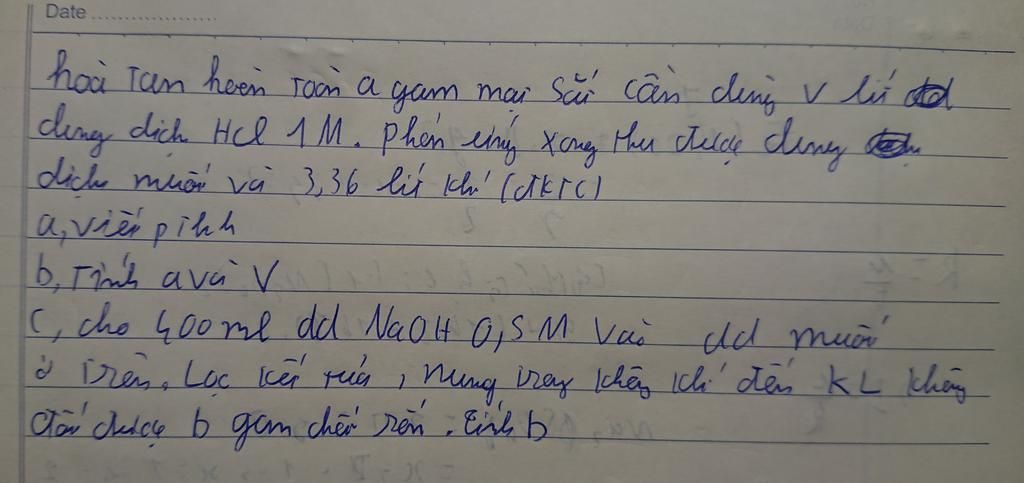 Date ....................
hoà Tan hoàn Toàn a gam mạt Sắt cần dùng V lít
dung dịch HCl 1M. phản ứng xong thu được dung
dịch muối và 3,36 lít khí (đKTC)
a, viết pthh
b, Tính a và V
c, cho 400 ml dd NaOH 0,5 M vào dd muối
ở trên. Lọc kết tủa, nung trong không khí đến KL không
đổi được b gam chất rắn. Tính b